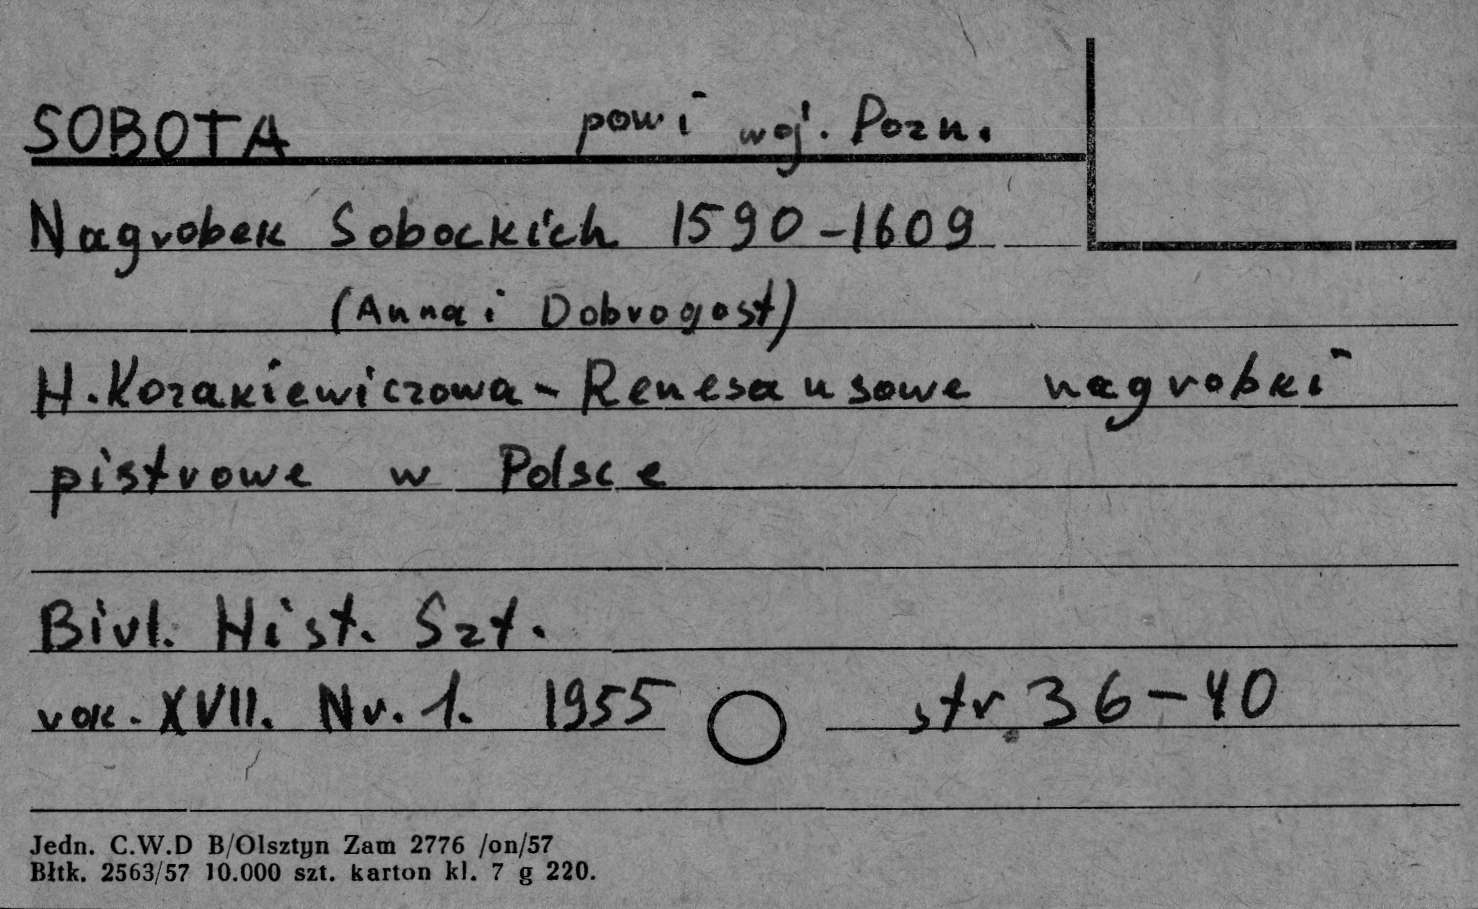 SOBOTA pow i woj. Pozn.
Nagrobek Sobockich 1590-1609
(Anna i Dobrogost)
H. Kozakiewiczowa - Renesansowe nagrobki
pistrowe w Polsce
Biul. Hist. Szt.
rok. XVII. Nr. 1. 1955 str 36-40
Jedn. C.W.D B/Olsztyn Zam 2776 /on/57
Błtk. 2563/57 10.000 szt. karton kl. 7 g 220.